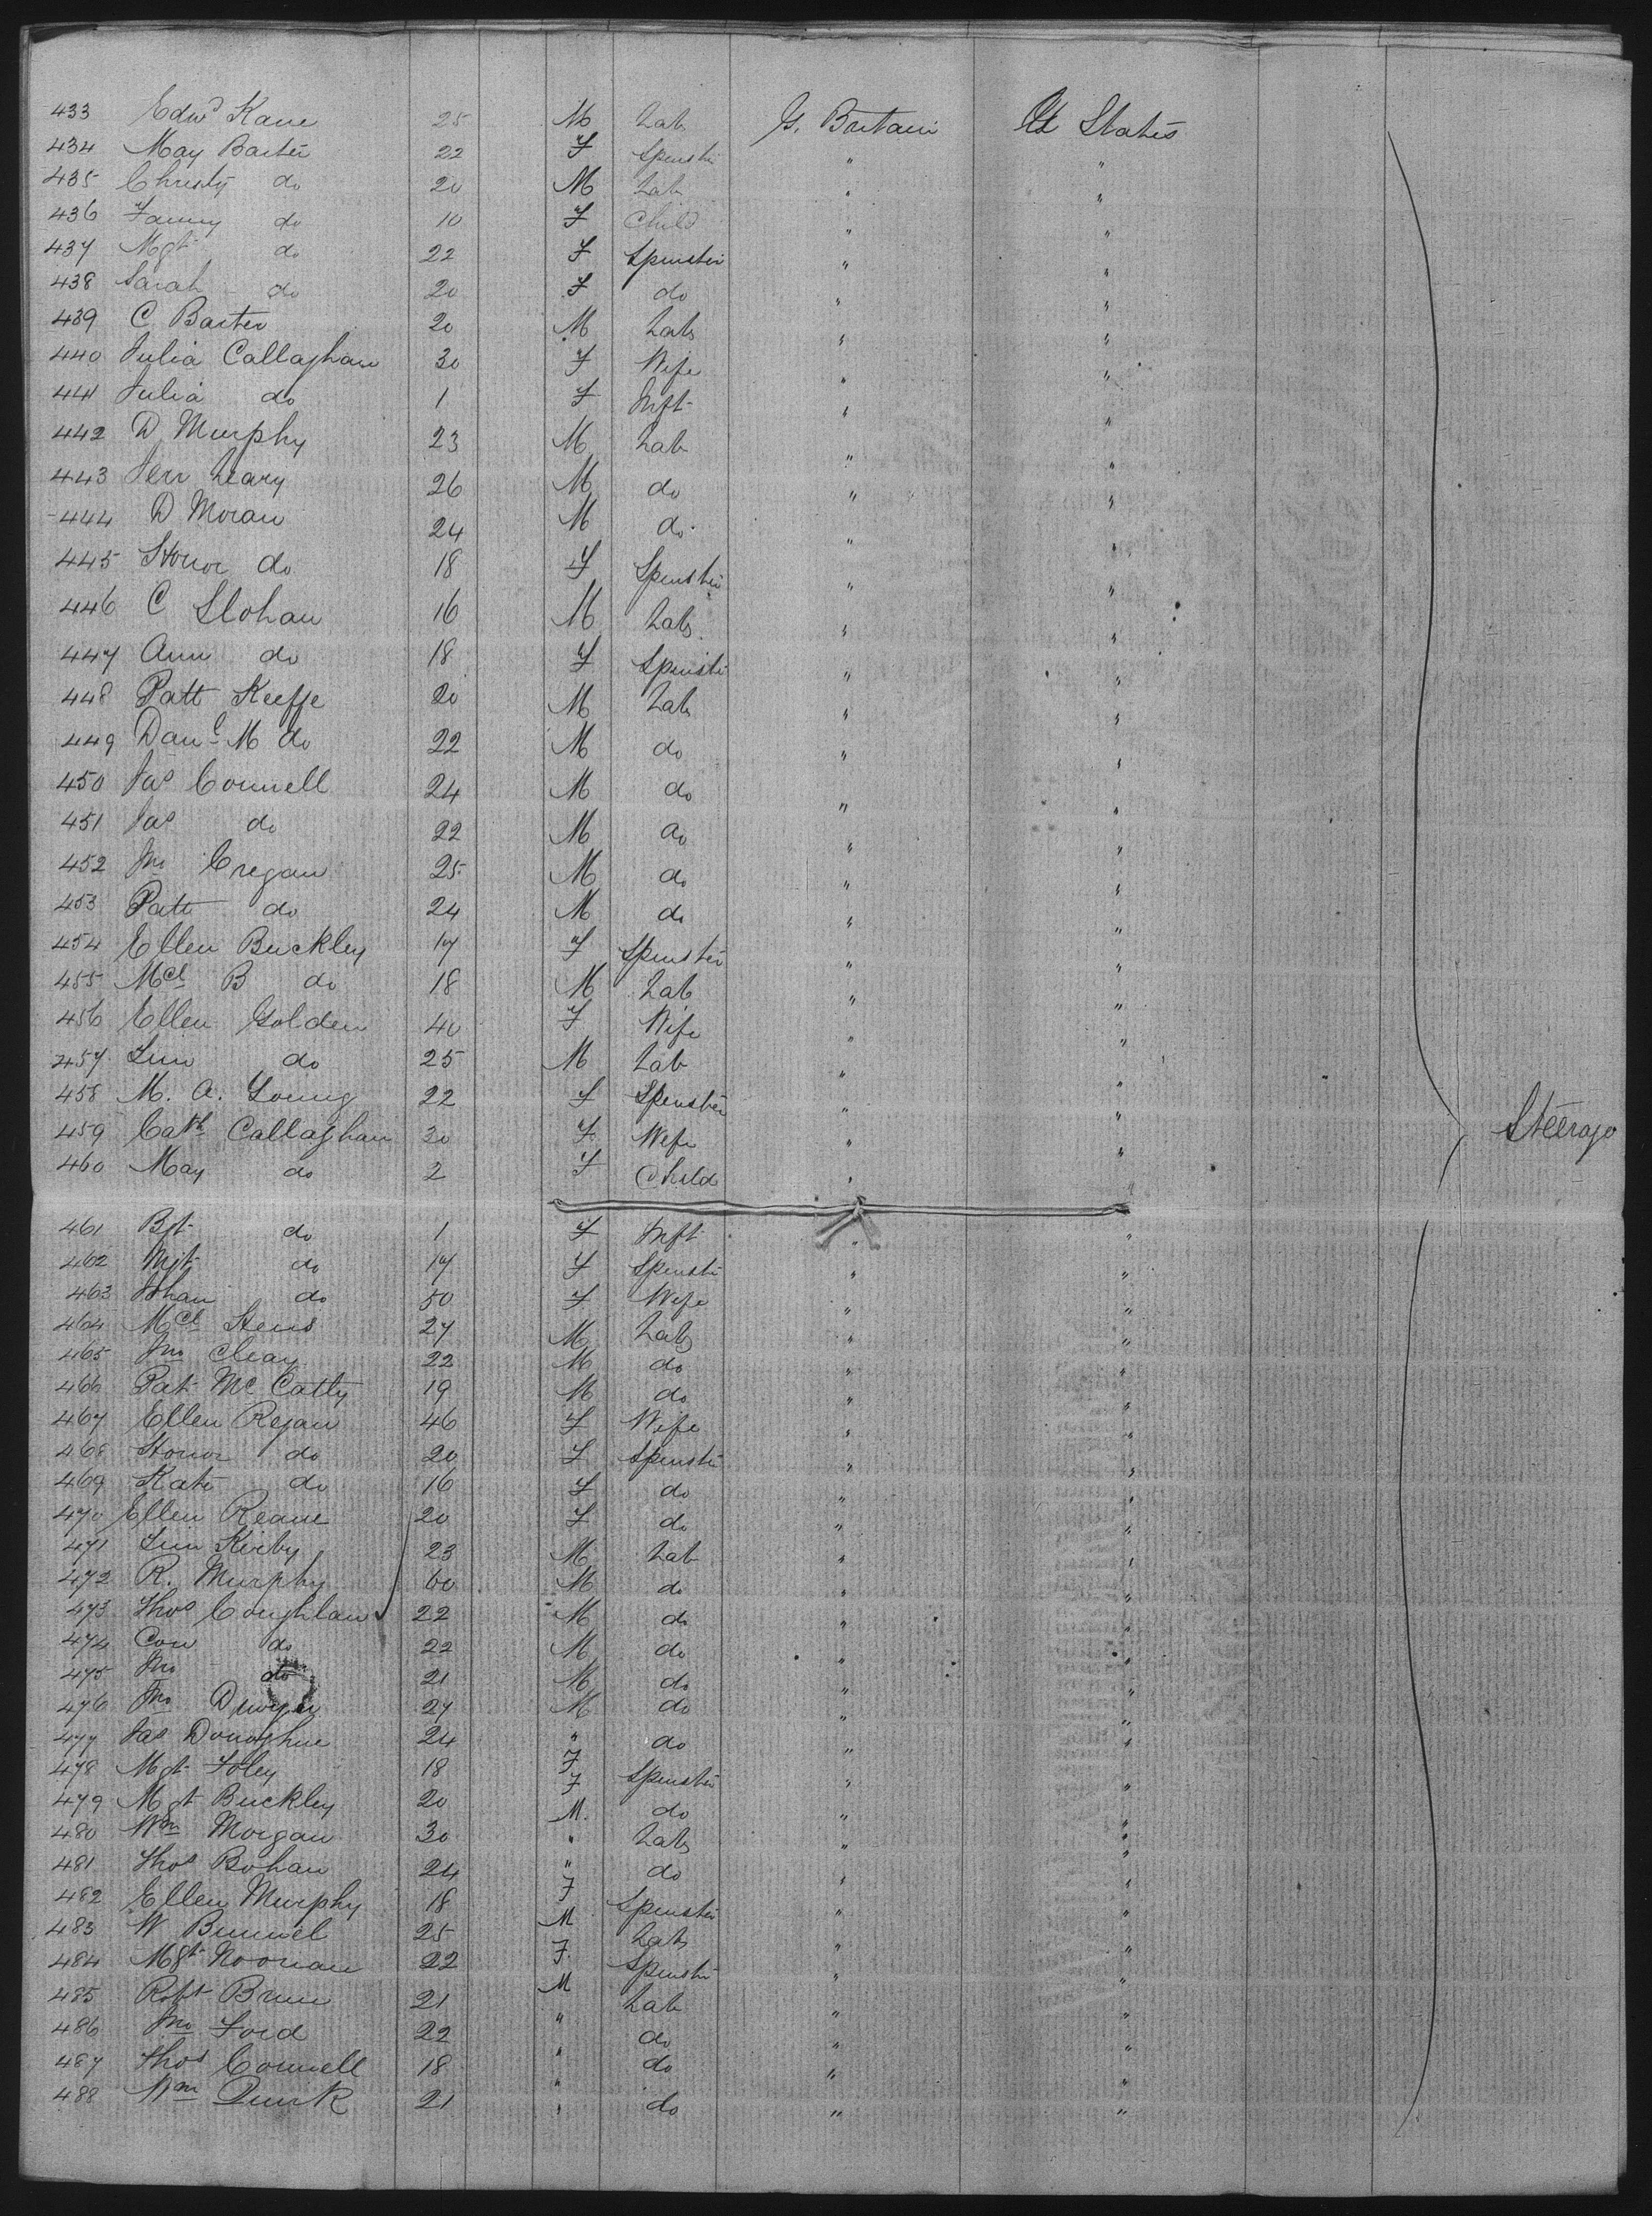 433 Edwd Kane 25 M Lab G. Britain U States
434 May Barter 22 F Spinster " "
435 Christy do 20 M Lab " "
436 Fanny do 10 F Child " "
437 Mgt do 22 F Spinster " "
438 Sarah do 20 F do " "
439 C Barter 20 M Lab " "
440 Julia Callaghan 30 F Wife " "
441 Julia do 1 F Inft " "
442 D Murphy 23 M Lab " "
443 Jerr Leary 26 M do " "
444 D Moran 24 M do " "
445 Honor do 18 F Spinster " "
446 C Slohan 16 M Lab " "
447 Ann do 18 F Spinster " "
448 Patt Keeffe 20 M Lab " "
449 Danl M do 22 M do " "
450 Jas Connell 24 M do " "
451 Jas do 22 M do " "
452 Jno Cregan 25 M do " "
453 Patt do 24 M do " "
454 Ellen Buckley 17 F Spinster " "
455 Mcl B do 18 M Lab " "
456 Ellen Golden 40 F Wife " "
457 Tim do 25 M Lab " "
458 M. A. Young 22 F Spinster " "
459 Cath Callaghan 30 F Wife " " Steerage
460 May do 2 F Child " "
461 Bgt do 1 F Inft " "
462 Mgt do 17 F Spinster " "
463 Johan do 50 F Wife " "
464 Mcl 27 M Lab " "
465 Jno Cleary 22 M do " "
466 Pat Mc Catty 19 M do " "
467 Ellen Regan 46 F Wife " "
468 Honor do 20 F Spinster " "
469 Kate do 16 F do " "
470 Ellen Reane 20 F do " "
471 Tim Kirby 23 M Lab " "
472 R. Murphy 60 M do " "
473 Thos Coughlan 22 M do " "
474 Con do 22 M do " "
475 Jno do 21 M do " "
476 Jno Dwyer 27 M do " "
477 Jas Donoghue 24 " do " "
478 Mgt Foley 18 F Spinster " "
479 Mgt Buckley 20 F do " "
480 Wm Morgan 30 M. Lab " "
481 Thos Bohan 24 " do " "
482 Ellen Murphy 18 F Spinster " "
483 W 25 M Lab " "
484 Mgt Noonan 22 F. Spinster " "
485 Robt 21 M Lab " "
486 Jno Ford 22 " do " "
487 Thos Connell 18 " do " "
488 Wm Quirk 21 " do " "